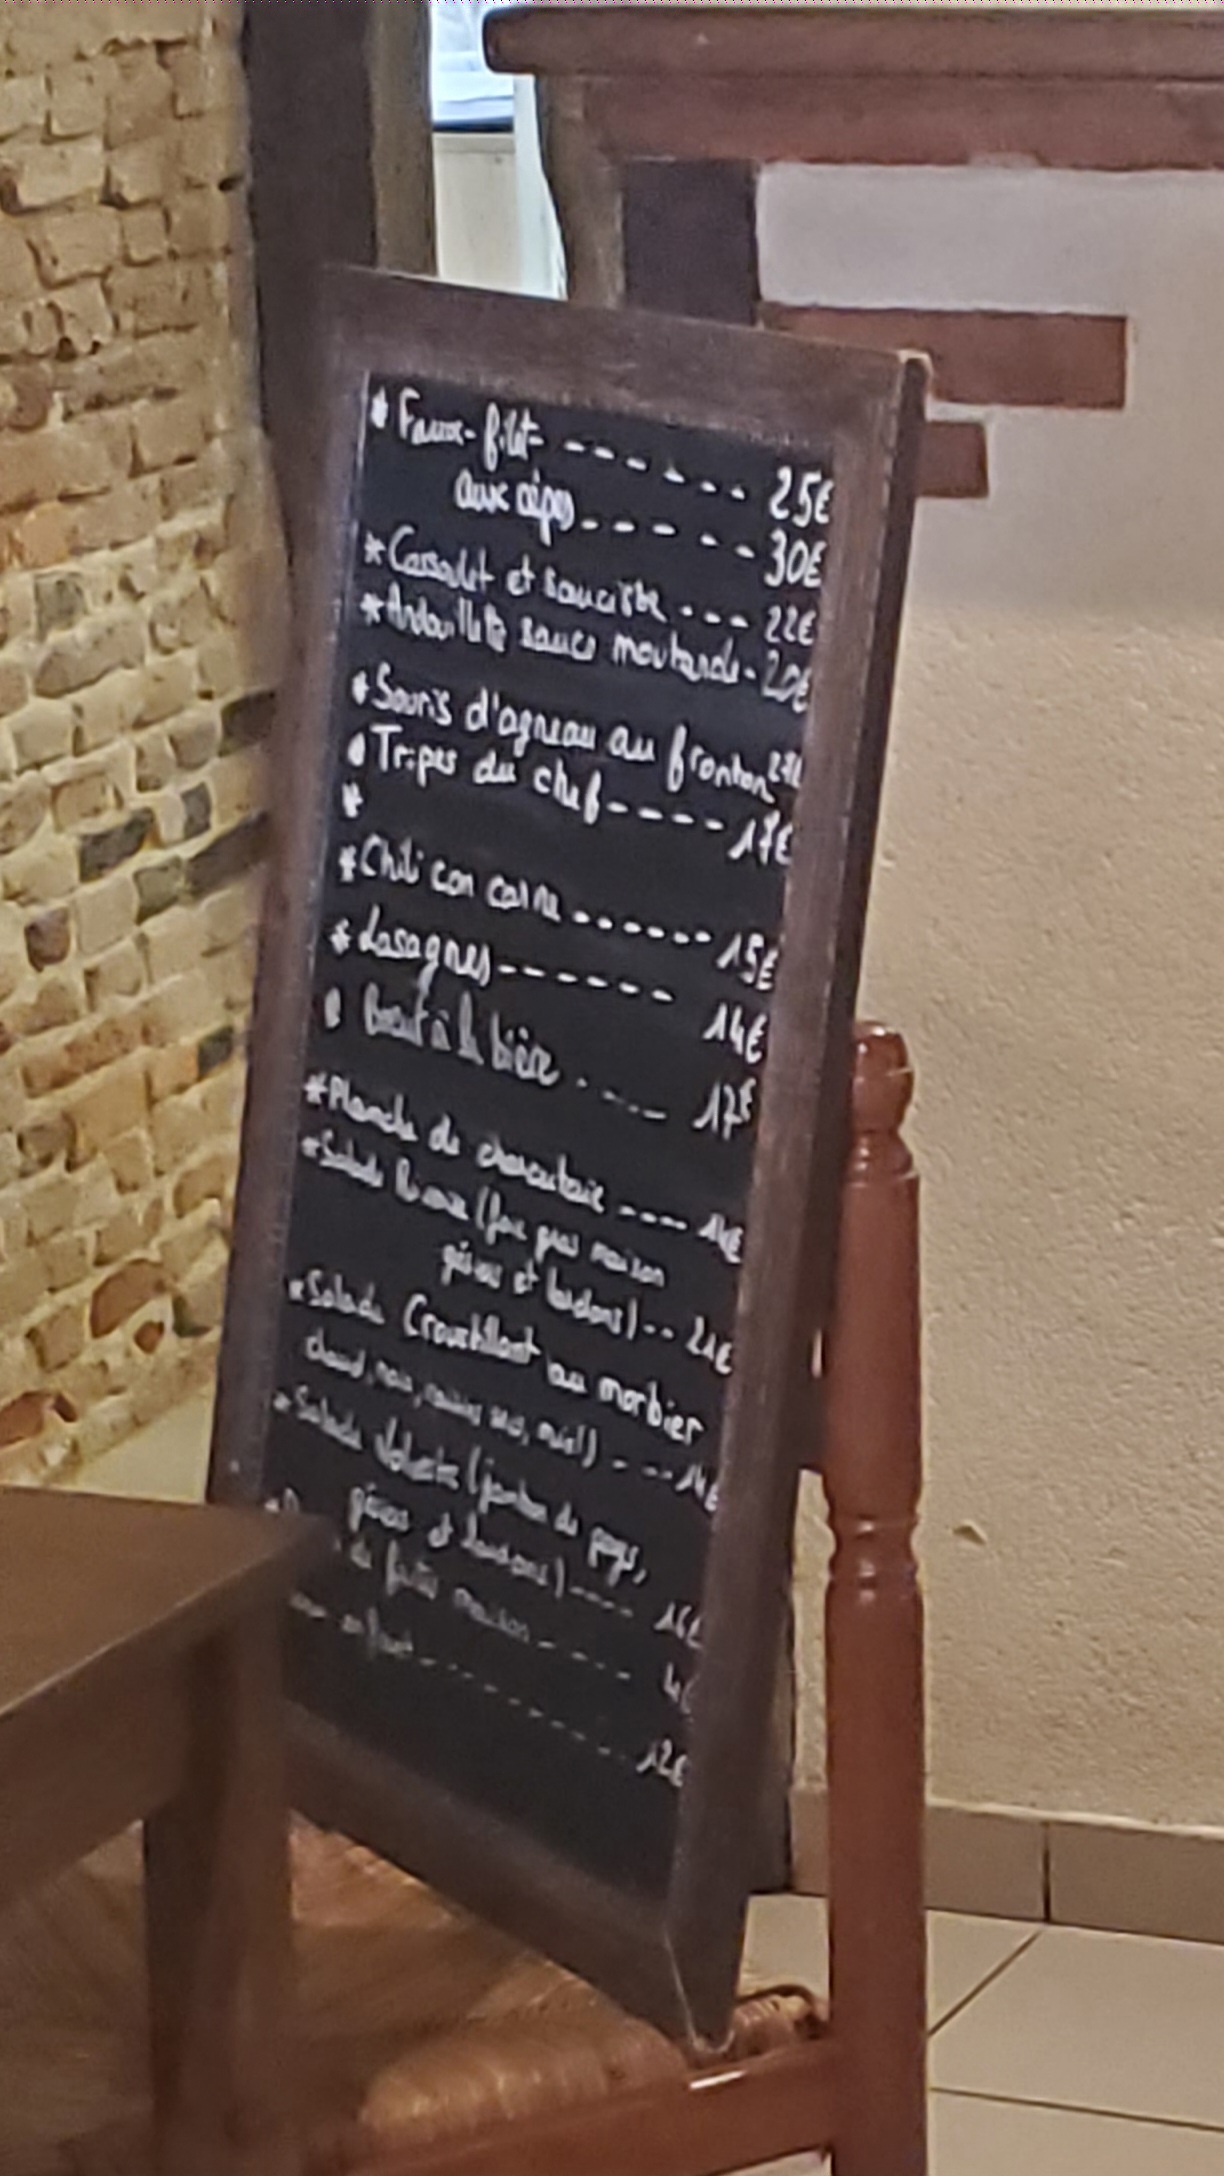 * Faux-filet ------- 25€
aux cèpes ----- 30€
* Cassoulet et saucisse --- 22€
* Andouillette sauce moutarde - 20€
* Souris d'agneau au fronton
* Tripes du chef ---- 17€
*
* Chili con carne ------ 15€
* Lasagnes ------ 14€
* Boeuf à la bière ---- 17€
* Planche de charcuterie ---- 14€
* Salade (foie gras maison
gésiers et lardons) -- 21€
* Salade Croustillant au morbier
chaud, noix, raisins secs, miel) --- 14€
* Salade (jambon de pays,
gésiers et lardons) ---- 16€
de frites maison ---- 4€
12€